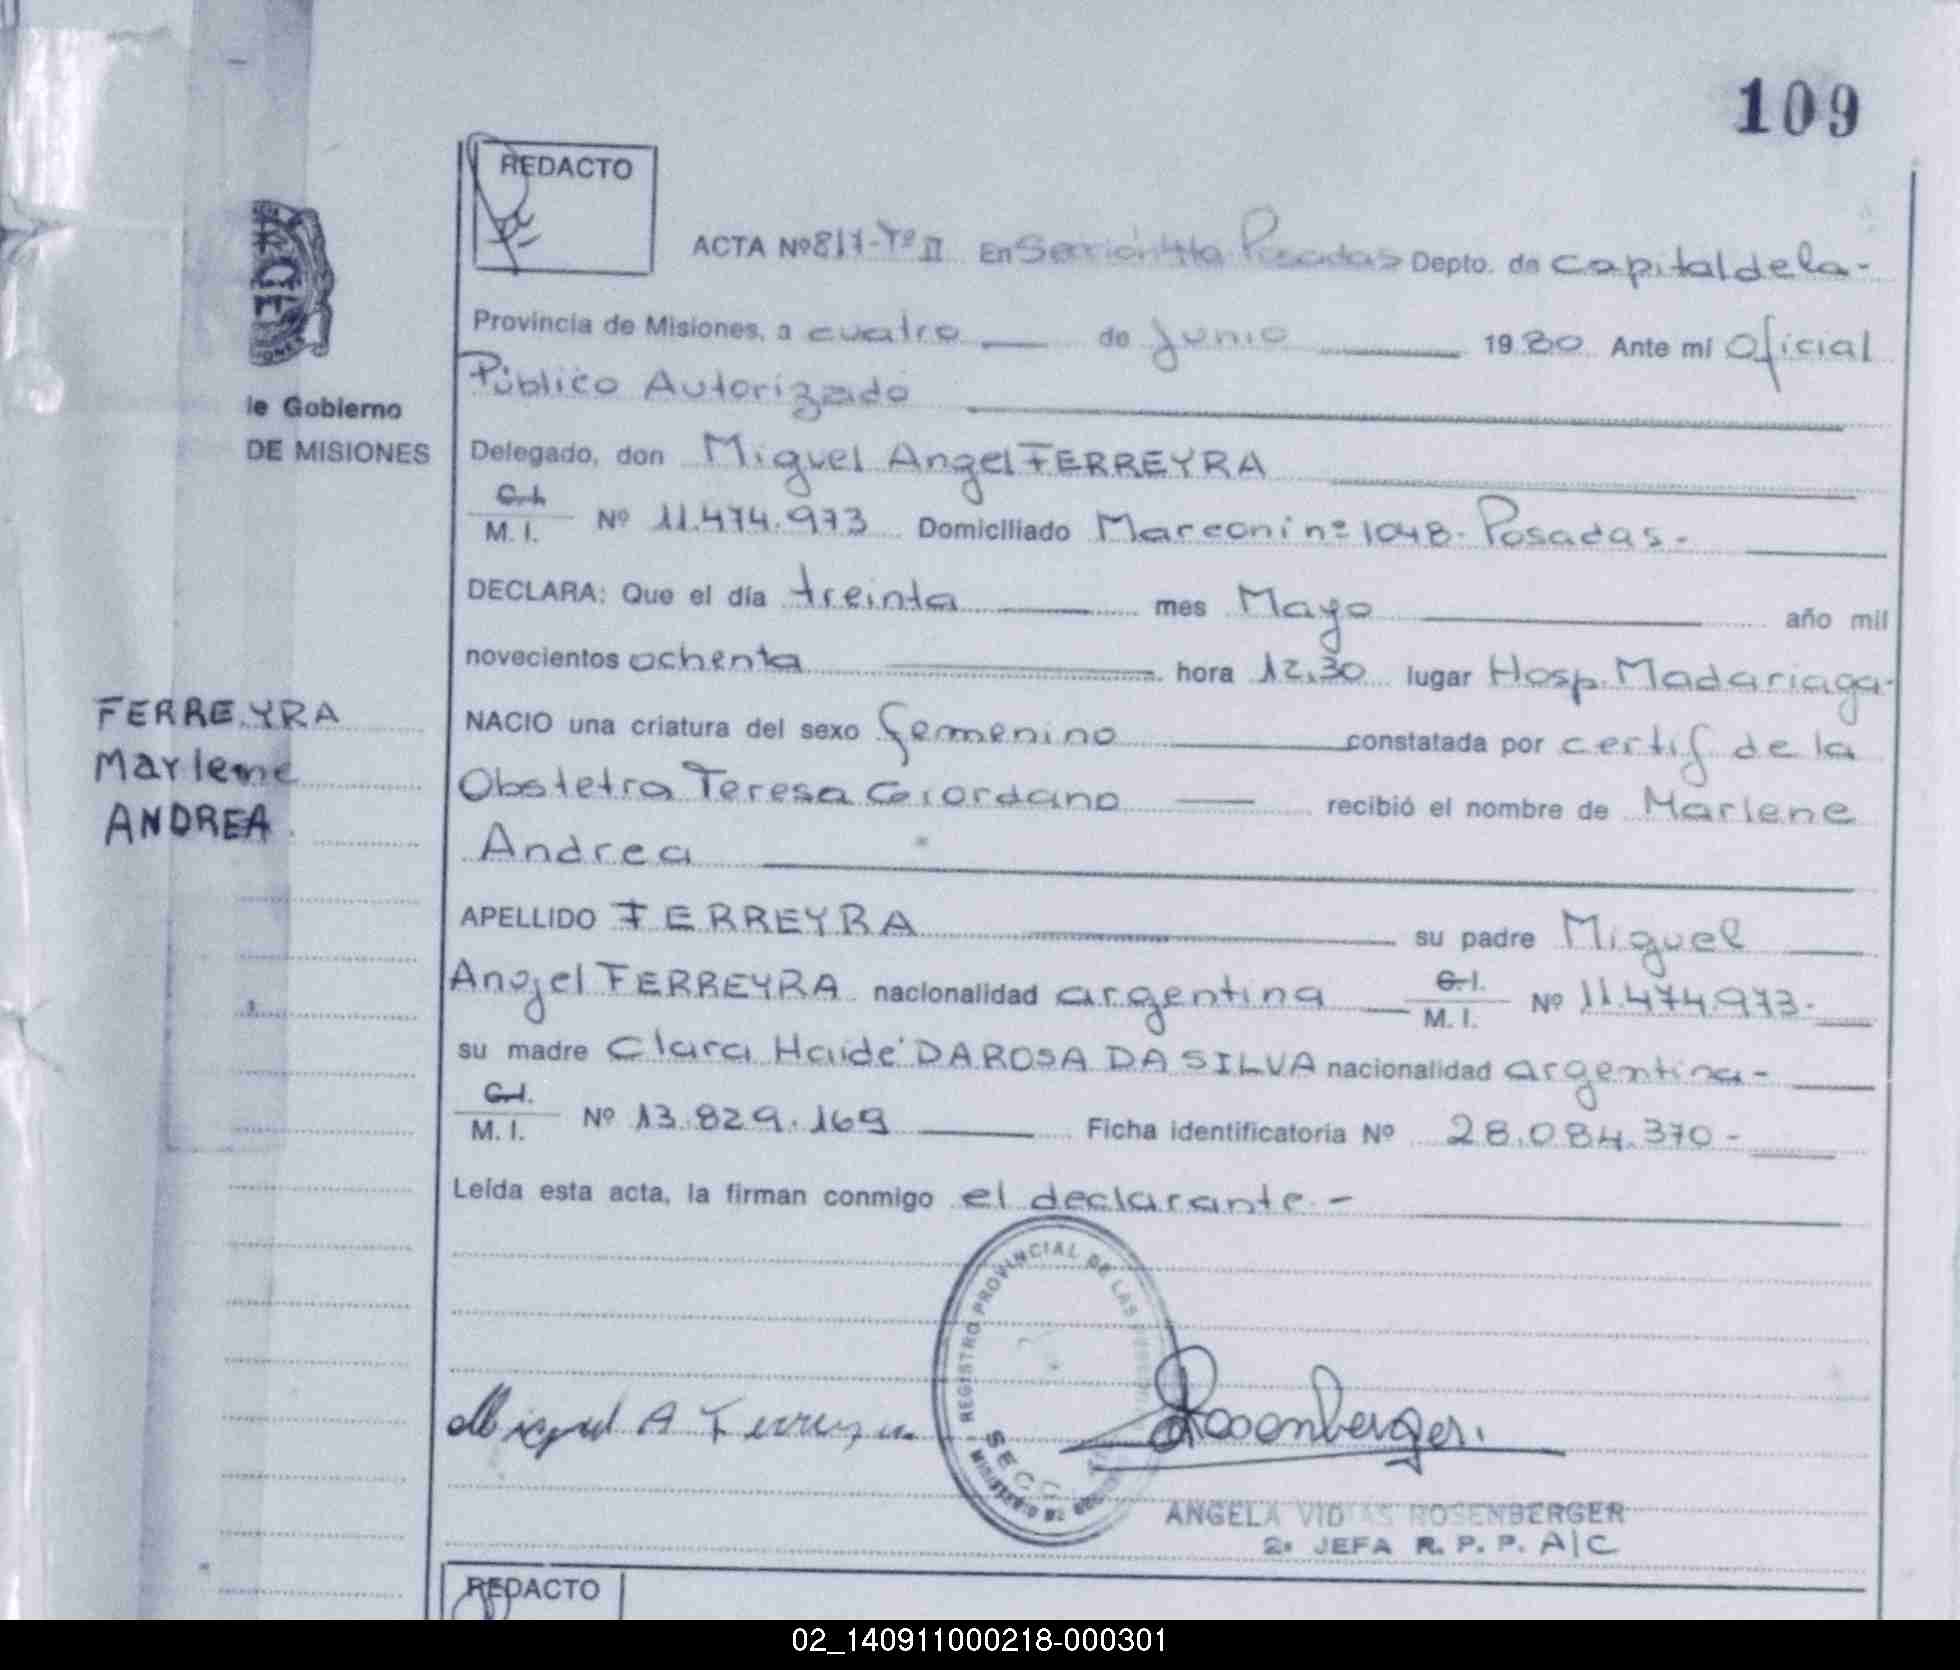 109
REDACTO
ACTA Nº 817-Tº II En Sección 1ra Posadas Depto. de Capital de la-
Provincia de Misiones, a cuatro de Junio 1980 Ante mi Oficial
Público Autorizado
le Gobierno
DE MISIONES
Delegado, don Miguel Angel FERREYRA
C.I. M. I. Nº 11.474.973 Domiciliado Marconi nº 1048- Posadas.-
DECLARA: Que el día treinta mes Mayo año mil
novecientos ochenta hora 12,30 lugar Hosp. Madariaga-
FERREYRA
Marlene
ANDREA
NACIO una criatura del sexo femenino constatada por certif de la
Obstetra Teresa Giordano recibió el nombre de Marlene
Andrea
APELLIDO FERREYRA su padre Miguel
Angel FERREYRA nacionalidad argentina C.I. M. I. Nº 11.474.973-
su madre Clara Haidé DA ROSA DA SILVA nacionalidad argentina-
C.I. M. I. Nº 13.829.169 Ficha identificatoria Nº 28.084.370-
Leída esta acta, la firman conmigo el declarante.-
REGISTRO PROVINCIAL DE LAS
SECC
MINISTERIO DE
Miguel A Ferreyra
Rosenberger.
ANGELA VIDIAS ROSENBERGER
2ª JEFA R. P. P. A/C
REDACTO
02_140911000218-000301